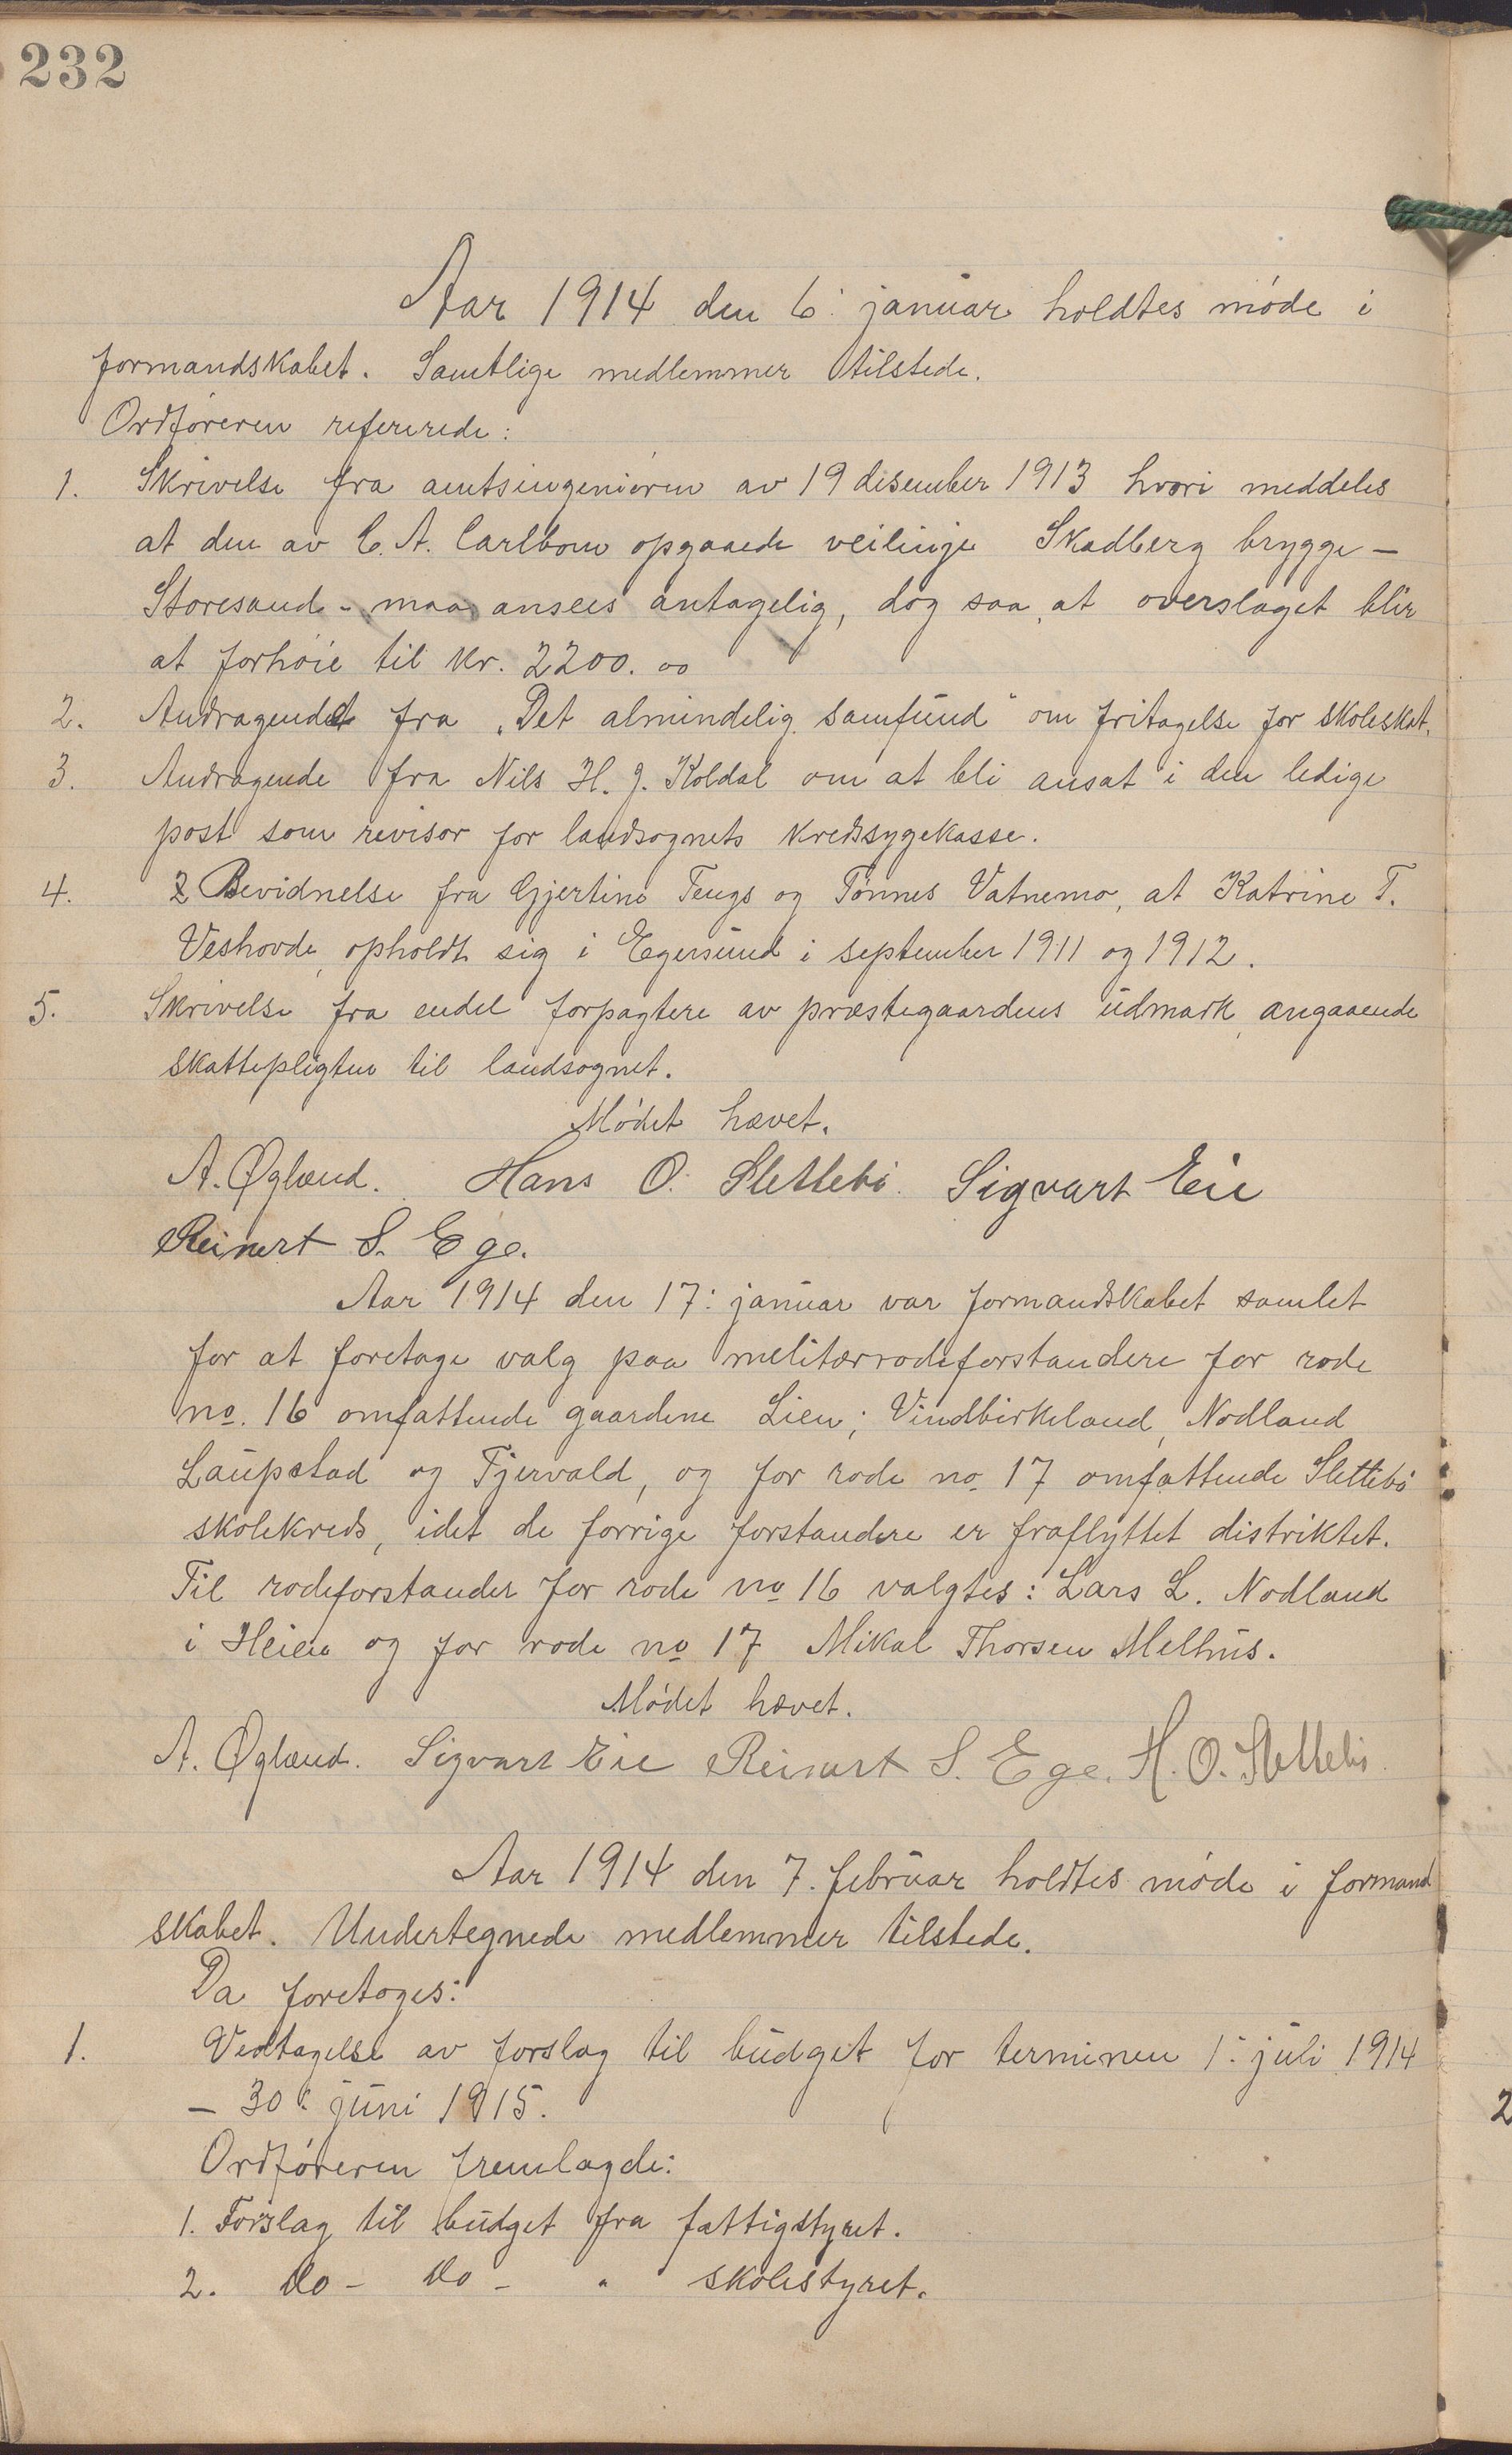 232
Aar 1914 den 6: januar holdtes møde i
formandskabet. Samtlige medlemmer tilstede.
Ordføreren refererede:
1. Skrivelse fra amtsingeniøren av 19 desember 1913 hvori meddeles
at den av C. A. Carlbom opgaaede veilinje Skadberg brygge –
Storesand – maa ansees antagelig, dog saa, at overslaget blir
at forhøie til kr. 2200.00
2. Andragendet fra "Det almindelig samfund" om fritagelse for skoleskat.
3. Andragende fra Nils H. J. Koldal om at bli ansat i den ledige
post som revisor for landsognets kredssygekasse.
4. 2 Bevidnelse fra Gjertine Tengs og Tønnes Vatnemo, at Katrine T.
Veshovde, opholdt sig i Egersund i september 1911 og 1912.
5. Skrivelse fra endel forpagtere av præstegaardens udmark, angaaende
skattepligten til landsognet.
Mødet hævet.
A. Øglænd. Hans O. Slettebø. Sigvart Eie
Reinert S. Ege.
Aar 1914 den 17: januar var formandskabet samlet
for at foretage valg paa melitærrodeforstandere for rode
no. 16 omfattende gaardene Lien; Vindbirkeland, Nodland
Laupstad og Tjervald, og for rode no. 17 omfattende Slettebø
skolekreds, idet de forrige forstandere er fraflyttet distriktet.
Til rodeforstander for rode no 16 valgtes: Lars L. Nodland
i Heien og for rode no 17 Mikal Thorsen Melhus.
Mødet hævet.
A. Øglænd. Sigvart Eie Reinert S. Ege. H. O. Slettebø.
Aar 1914 den 7. februar holdtes møde i formand
skabet. Undertegnede medlemmer tilstede.
Da foretoges:
1. Vedtagelse av forslag til budget for terminen 1: juli 1914
– 30: juni 1915.
Ordføreren fremlagde:
1. Forslag til budget fra fattigstyret.
2. do – do – " skolestyret.
2